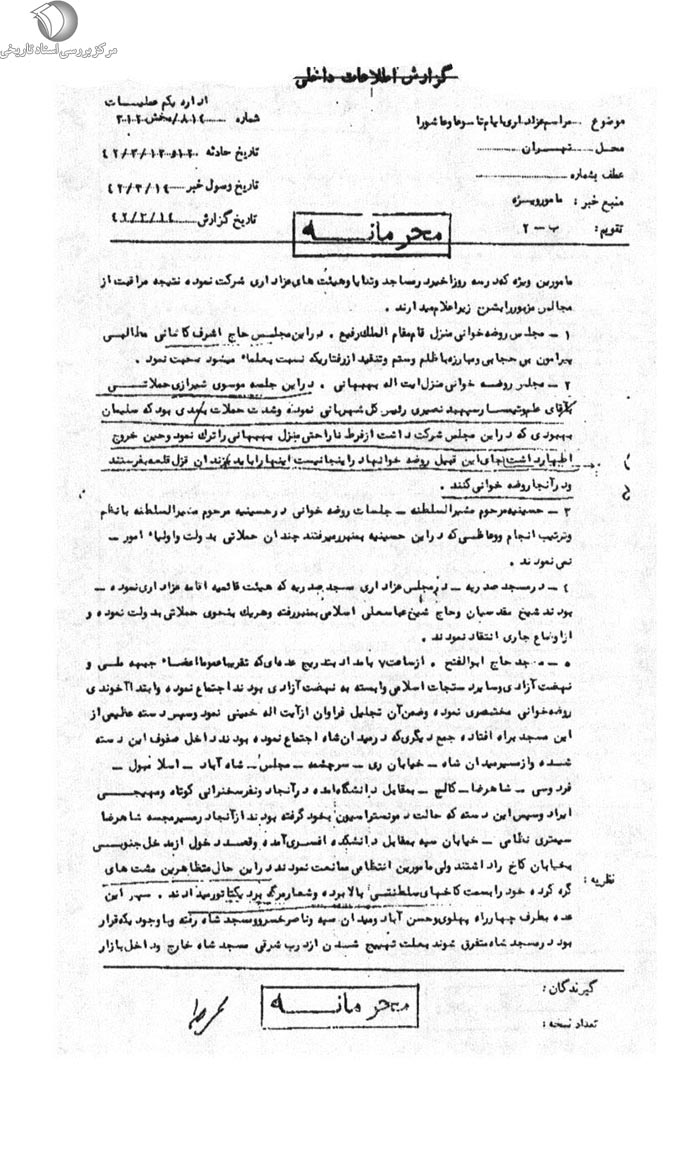 مرکز بررسی اسناد تاریخی
گزارش اطلاعات داخلی
اداره یکم عملیات
موضوع مراسم عزاداری ایام تاسوعا و عاشورا
شماره ۸۰۱٤/بخش ۳۰۱۰۲
محل تهران
تاریخ حادثه ۱۲و۱۳/۳/٤۲
عطف بشماره
منبع خبر : مامور ویژه
تاریخ وصول خبر ۱٤/۳/٤۲
تقویم : ب — ۲
تاریخ گزارش ۱٤/۳/٤۲
محرمانه
مامورین ویژه که در سه روز اخیر در مساجد و تکایا و هیئت های عزاداری شرکت نموده نتیجه مراقبت از
مجالس مزبور را بشرح زیر اعلام میدارند .
۱ — مجلس روضه خوانی منزل قام مقام الملک رفیع . در این مجلس حاج اشرف کاشانی مطالبی
پیرامون بی حجابی و مبارزه با ظلم و ستم و تنقید از رفتاریکه نسبت بعلماء میشود صحبت نمود .
۲ — مجلس روضه خوانی منزل ایت اله بهبهانی . در این جلسه موسوی شیرازی حملاتی
بآقای علم و تیمسار سپهبد نصیری رئیس کل شهربانی نموده و شدت حملات بحدی بود که سلیمان
بهبودی که در این مجلس شرکت داشت از فرط ناراحتی منزل بهبهانی را ترک نمود و حین خروج
اظهار داشت جای این قبیل روضه خوانها در اینجا نیست اینها را باید بزندان قزل قلعه بفرستند
و در آنجا روضه خوانی کنند .
۳ — حسینیه مرحوم مشیرالسلطنه — جلسات روضه خوانی در حسینیه مرحوم مشیرالسلطنه با نظم
و ترتیب انجام و وعاظی که در این حسینیه بمنبر میرفتند چندان حملاتی بدولت و اولیاء امور —
نمی نمودند .
٤ — در مسجد صدریه — در مجلس عزاداری مسجد صدریه که هیئت قائمیه اقامه عزاداری نموده —
بودند شیخ مقدسیان و حاج شیخ عباسعلی اسلامی بمنبر رفته و هریک بنحوی حملاتی بدولت نموده و
از اوضاع جاری انتقاد نمودند .
۵ — مسجد حاج ابوالفتح . از ساعت ۷ بامداد بتدریج عده‌ای که تقریبا عموما اعضاء جبهه ملی و
نهضت آزادی و سایر دستجات اسلامی وابسته به نهضت آزادی بودند اجتماع نموده و ابتدا آخوندی
روضه خوانی مختصری نموده و ضمن آن تجلیل فراوان از آیت اله خمینی نمود و سپس دسته عظیمی از
این مسجد براه افتاده جمع دیگری که در میدان شاه اجتماع نموده بودند داخل صفوف این دسته
شده و از مسیر میدان شاه — خیابان ری — سرچشمه — مجلس — شاه آباد — اسلامبول —
فردوسی — شاهرضا — کالج — بمقابل دانشگاه آمده در آنجا دو نفر سخنرانی کوتاه و مهیجی
ایراد و سپس این دسته که حالت دمونستراسیون بخود گرفته بودند از آنجا در مسیر مجسمه شاهرضا
سیمتری نظامی — خیابان سپه بمقابل دانشکده افسری آمده و قصد دخول از مدخل جنوبی
بخیابان کاخ را داشتند ولی مامورین انتظامی ممانعت نمودند در این حال متظاهرین مشت های
نظریه :
گره کرده خود را بسمت کاخهای سلطنتی بالا برده و شعار مرگ برد یکتاتور میدادند . سپس این
عده بطرف چهارراه پهلوی و حسن آباد و میدان سپه و ناصرخسرو و مسجد شاه رفته و با وجود یکه قرار
بود در مسجد شاه متفرق شوند بعلت تهییج شدن از درب شرقی مسجد شاه خارج و داخل بازار
گیرندگان :
محرمانه
تعداد نسخه :